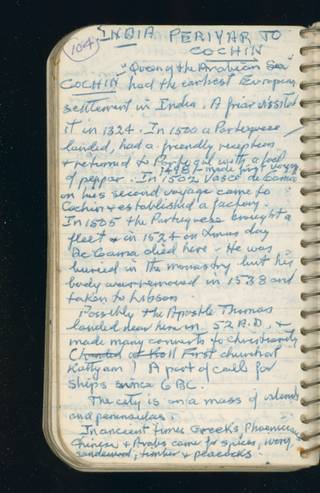 104
INDIA PERIYAR TO
COCHIN
"Queen of the Arabian Sea"
COCHIN had the earliest European
settlement in India. A friar visited
it in 1324. In 1500 a Portuguese
landed, had a friendly reception
& returned to Portugal with a load
1498 made first voyage
of pepper. In 1502 Vasco da Gama
on his second voyage came to
Cochin & established a factory.
In 1505 the Portuguese brought a
fleet & in 1524 on Xmas day
De Gama died here. He was
buried in the monastry but his
body was removed in 1538 and
taken to Lisbon
Possibly the Apostle Thomas
landed near here in 52 A.D. &
made many converts to christianity
First church at
Kottyam! A port of call for
ships since 6 BC.
The city is on a mass of islands
and peninsulas.
In ancient times Greeks, Phoenicians
Chinese & Arabs came for spices, ivory,
sandalwood, timber & peacocks.